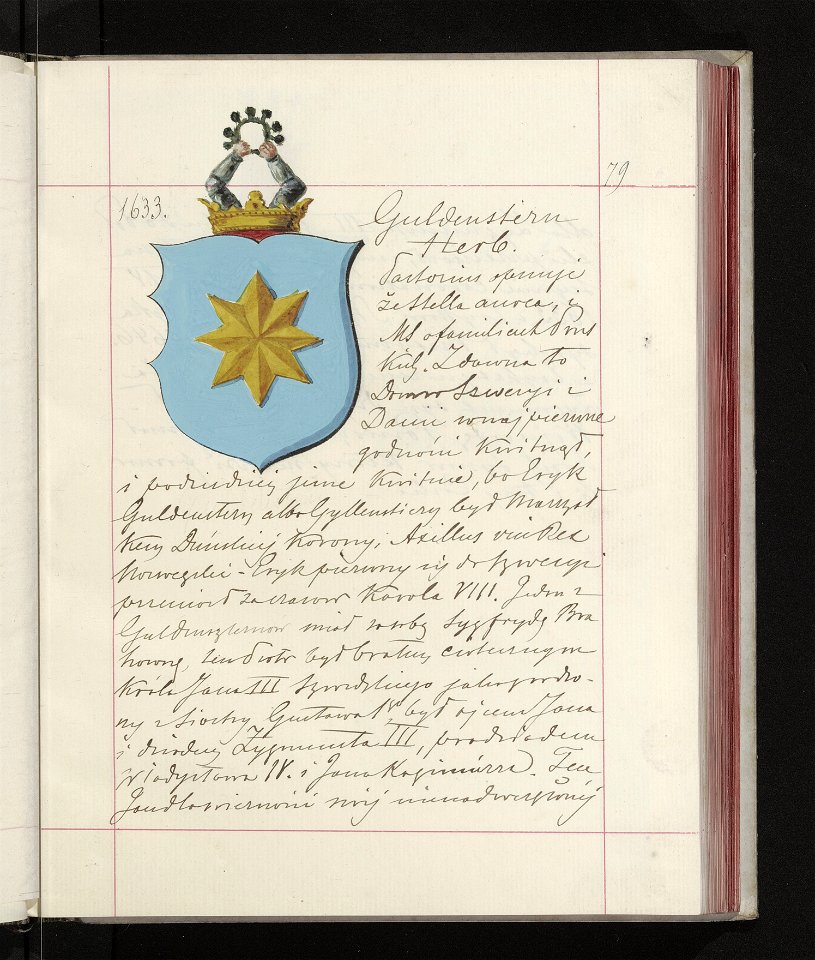 79
1633.
Guldenstern
Herb.
Pastorius opisuje
że Stella aurea, i
MS o familiach Prus
Kich. Zdawna to
Domu w Szwecyi i
Danii w najpierwsze
godności Kwitnął,
i podziśdzień jeszcze Kwitnie, bo Eryk
Guldenstern albo Gyllenstiern był Marszał
Kiem Duńskiej Korony, Axillus vice Rex
Norwegski - Eryk pierwszy się do Szwecyi
przeniosł za czasów Karola VIII. Jeden z
Guldensternow miał za sobą Sygfrydę Bra
howną, ten był bratem ciotecznym
Króla Jana III Szwedzkiego jako
ny z Siostry Gustawa był ojcem Jana
i dziadem Zygmunta III, pradziadem
Władysława IV. i Jana Kazimierza. Ten
Jan dla wierności swej nienadwerężonej